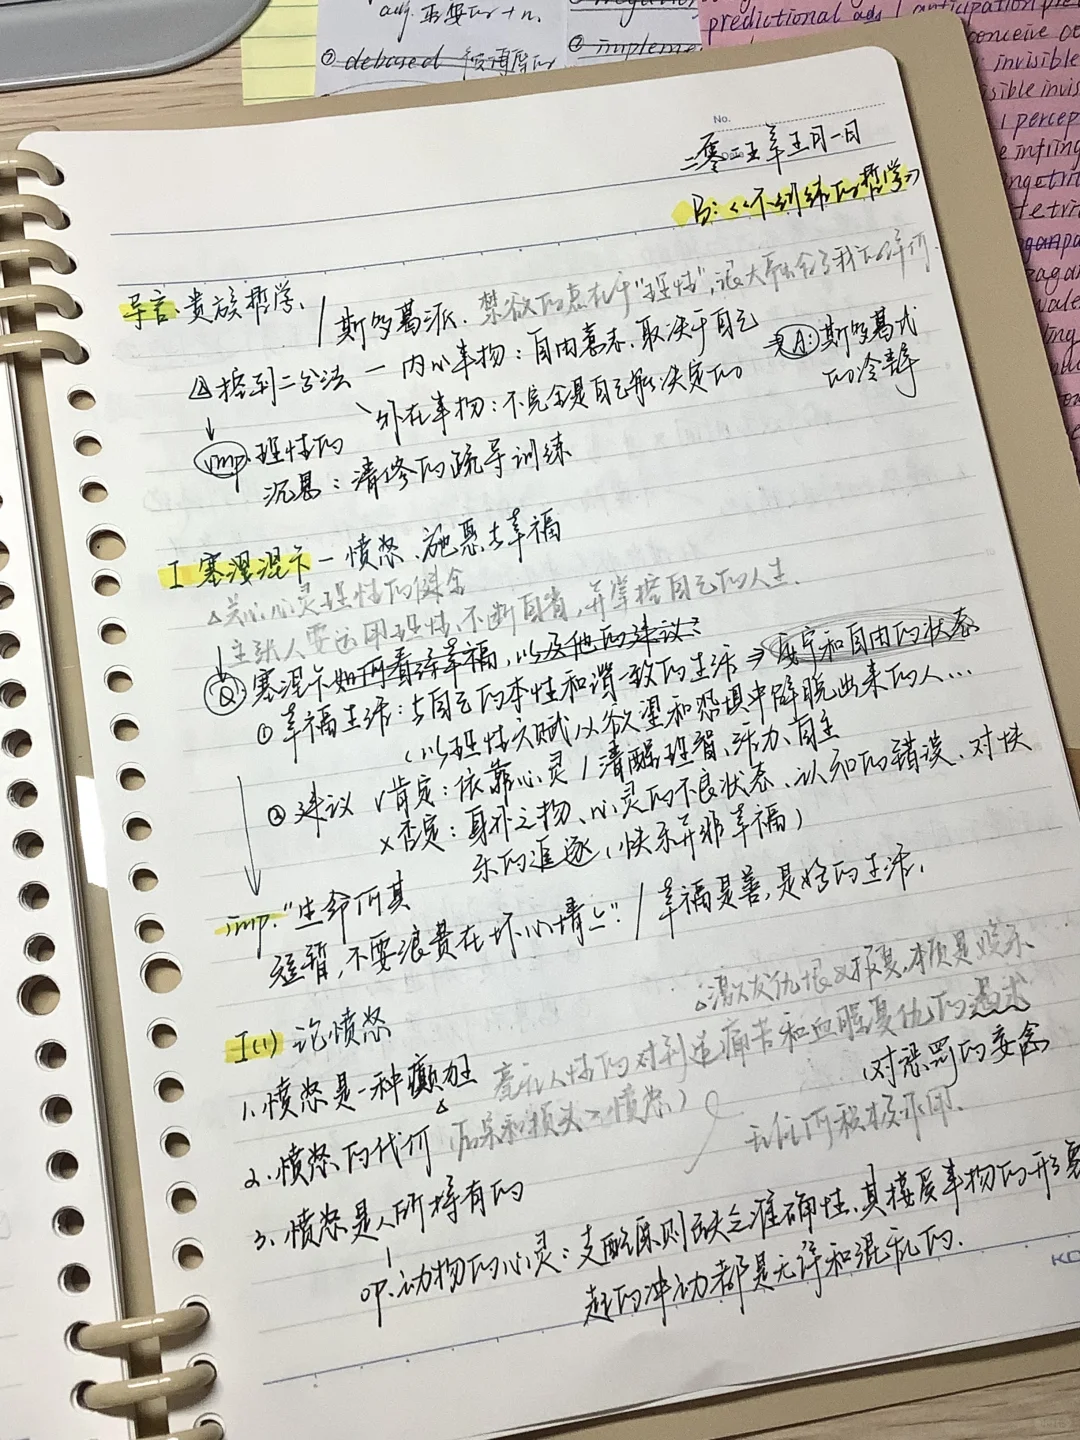 adj. 重要的 + n.
② debased
② impleme
predictional ads / anticipation pre
conceive
invisible
sible invis
percep
No.
Date
二零二五年五月一日
B:《不训练的哲学》
导言、贵族哲学、
/ 斯多葛派、禁欲的点在于"理性",很大 我的评价.
控制二分法 — 内心事物:自由意志、取决于自己
A: 斯多葛式的冷静
外在事物:不完全是自己能决定的
↓
imp. 理性的
沉思:清修的疏导训练
I 塞涅卡 — 愤怒、施恩与幸福
△关心心灵理性的健全
主张人要运用理性、不断自省,并掌控自己的人生.
Q: 塞涅卡如何看待幸福,以及他的建议?
① 幸福生活:与自己的本性和谐一致的生活 ⇒ 安宁和自由的状态
(以理性天赋从欲望和恐惧中解脱出来的人…
② 建议 √肯定:依靠心灵 / 清醒理智、活力、自主
×否定:身外之物、心灵的不良状态、认知的错误、对快
乐的追逐(快乐并非幸福)
imp. "生命何其
短暂,不要浪费在坏心情上". / 幸福是善,是好的生活.
I(1) 论愤怒
△激发仇恨 报复,本质是
1. 愤怒是一种癫狂
毫无人性的对制造痛苦和血腥复仇的渴求
(对惩罚的妄念
2. 愤怒的代价
(后果和损失>愤怒)
无任何积极作用.
3. 愤怒是人所特有的
op. 动物的心灵:支配原则缺乏准确性、其接受事物的形象
起的冲动都是无序和混乱的.